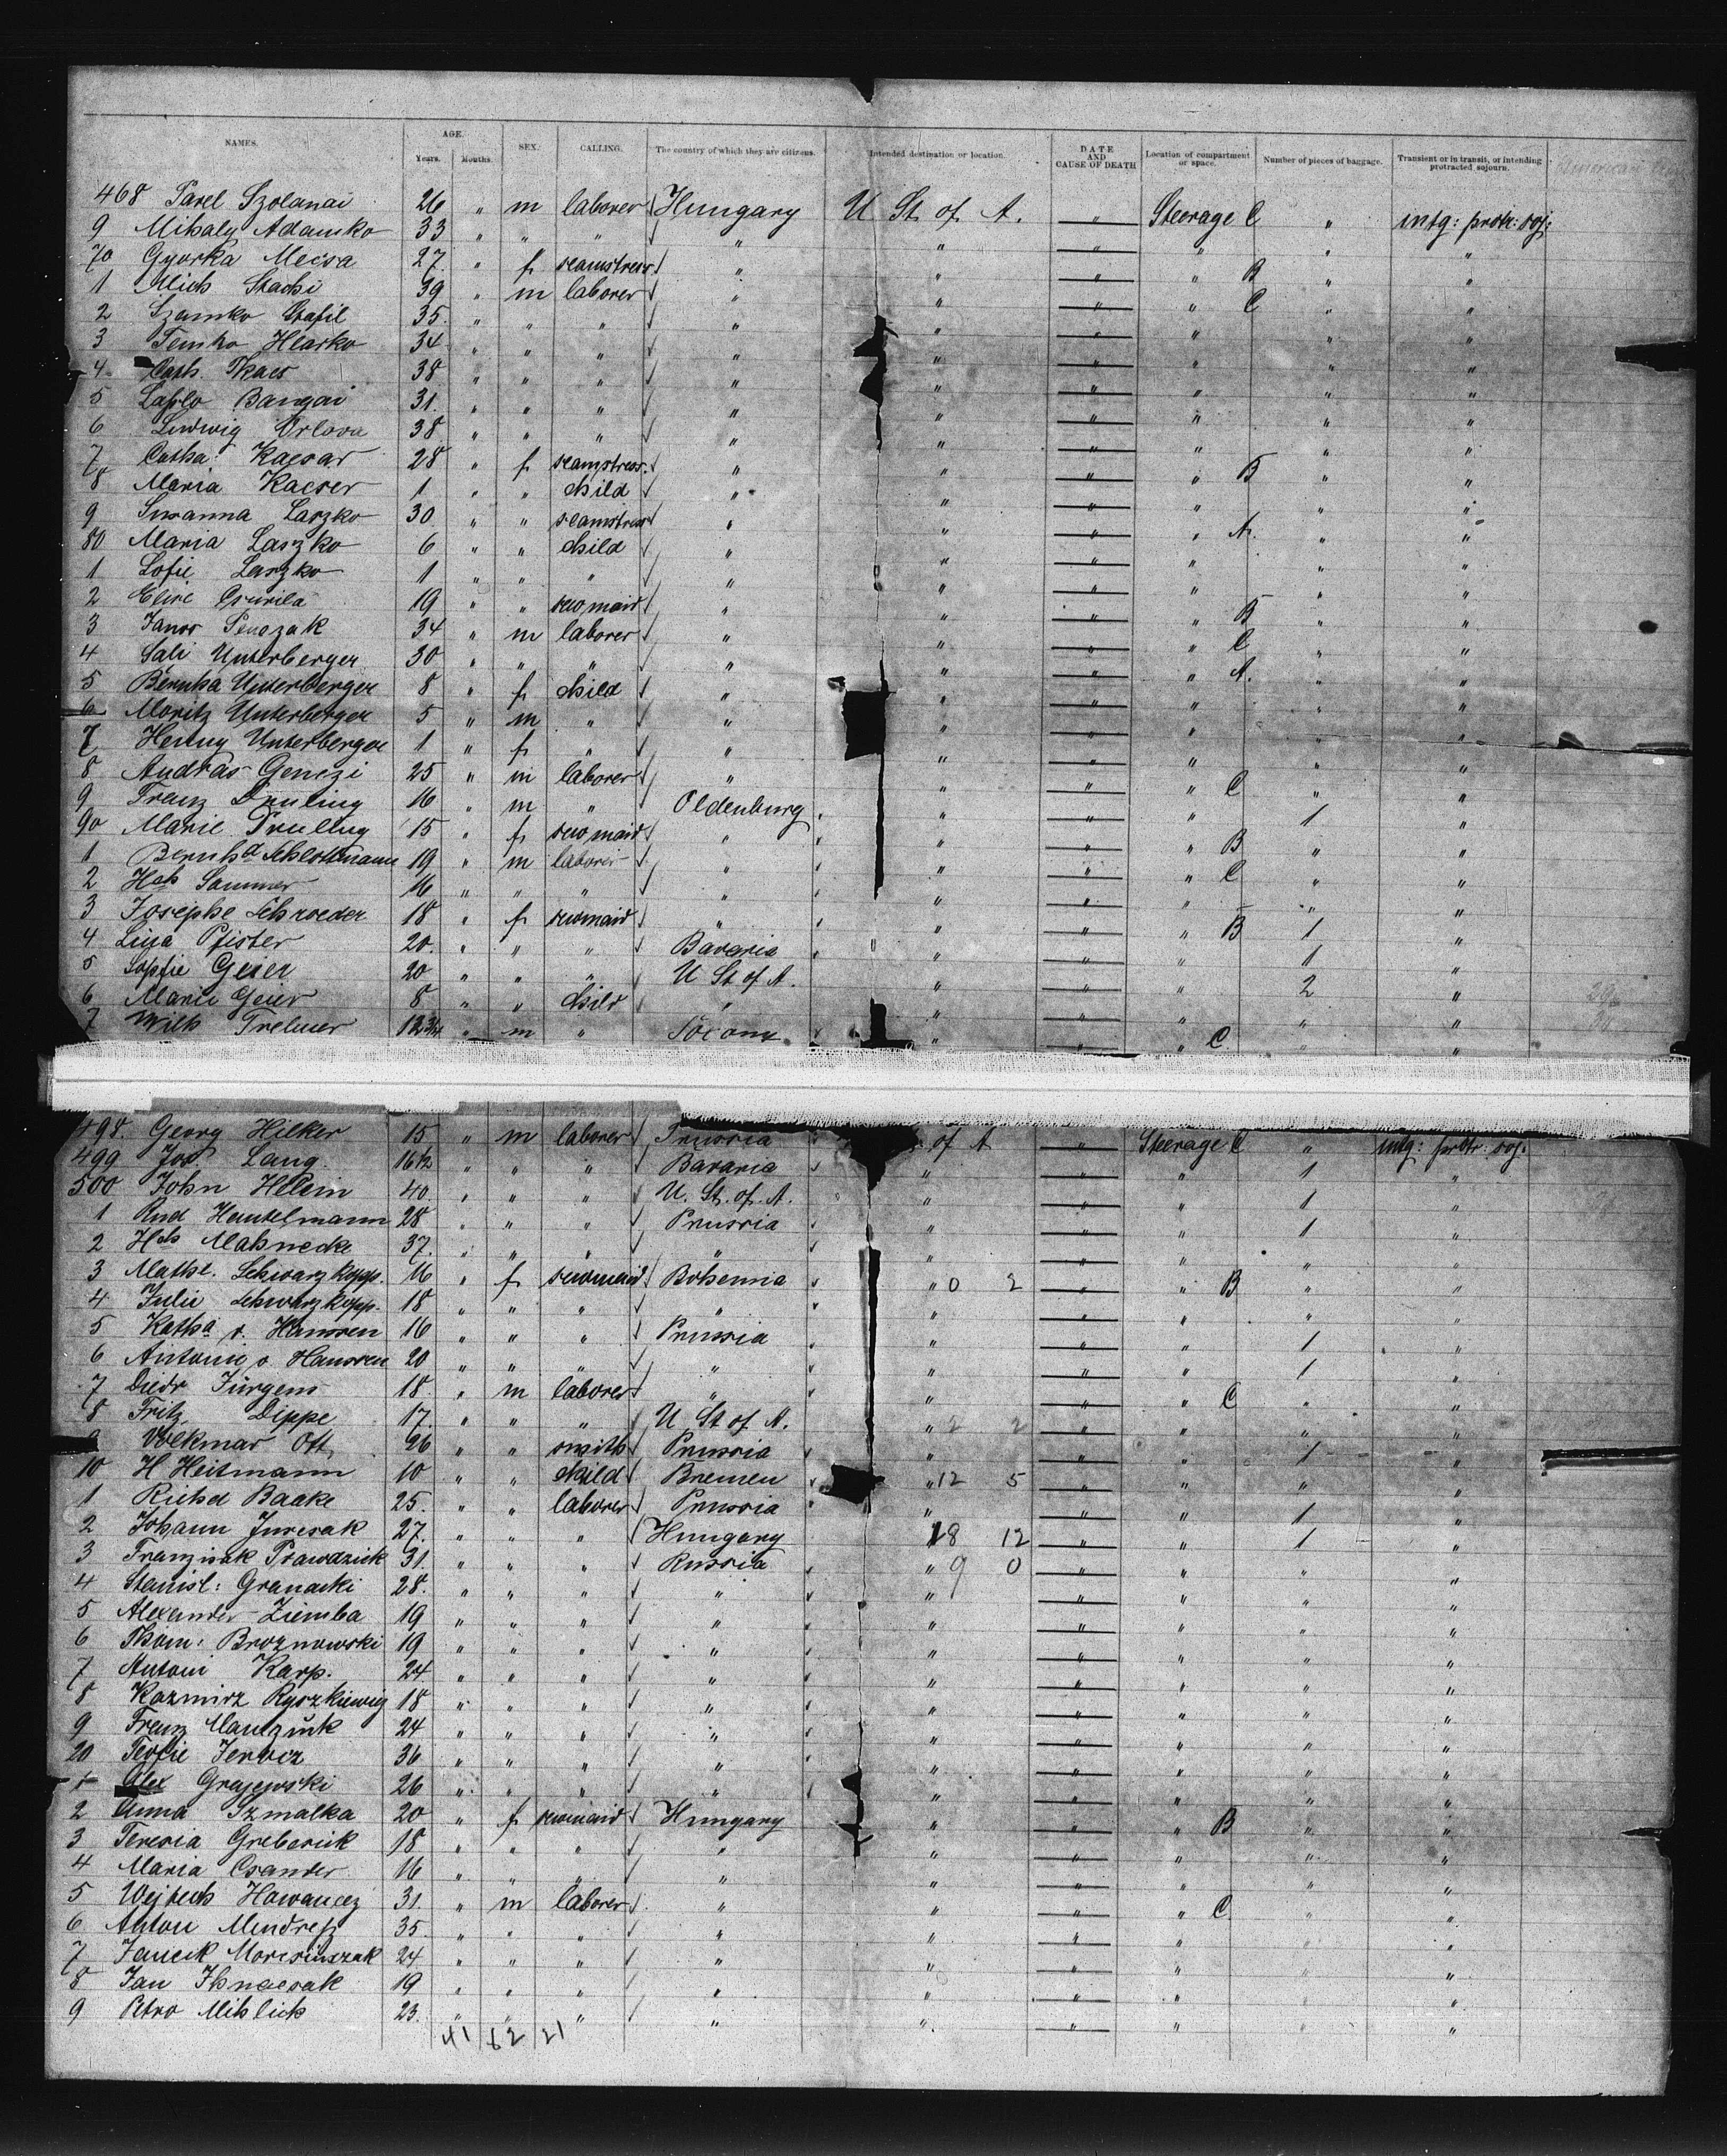 NAMES. AGE. Years. Months. SEX. CALLING. The country of which they are citizens. Intended destination or location. DATE AND CAUSE OF DEATH Location of compartment or space. Number of pieces of baggage. Transient or in transit, or intending protracted sojourn.
468 Pavel Szolanai 26 " m laborer Hungary U St. of A. " Steerage C " intg: protr: soj:
9 Mihaly Adamko 33 " " " " " " " " "
70 Gyorka Mecsa 27. " f seamstress " " " " B " "
1 Mich Stachi 39 " m laborer " " " " C " "
2 Szamko 35. " " " " " " " " "
3 Temko Hlarko 34 " " " " " " " " "
4 Cath. Tkacs 38 " " " " " " " " "
5 Laszlo Bangai 31. " " " " " " " " "
6 Ludwig Orlova 38 " " " " " " " " "
7 Catha: Kacsar 28 " f seamstress. " " " " B " "
8 Maria Kacser 1 " " child " " " " " "
9 Susanna Laszko 30 " " seamstress " " " " A. " "
80 Maria Laszko 6 " " child " " " " " "
1 Sofie Laszko 1 " " " " " " " " "
2 Elise Csurila 19 " " sewmaid " " " " B " "
3 Janos Penczak 34 " m laborer " " " " C " "
4 Sali Unterberger 30 " " " " " " " A. " "
5 Bernha Unterberger 8 " f child " " " " " "
6 Moritz Unterberger 5 " m " " " " " " "
7 Henny Unterberger 1 " f " " " " " " "
8 Andras Genczi 25 " m laborer " " " " C " "
9 Franz Druling 16 " m " Oldenburg " " " 1 "
90 Marie Druling 15 " f sewmaid " " " " B " "
1 Bernhd Schlottmann 19 " m laborer " " " " C " "
2 Hch Sommer 16 " " " " " " " " "
3 Josephe Schroeder 18 " f sewmaid " " " " B 1 "
4 Lina Pfister 20. " " " Bavaria " " " 1 "
5 Sophie Geier 20 " " " U St of A. " " " 2 "
6 Marie Geier 8 " " child " " " " " "
7 Wilh 12 3/4 " m " Saxony " " " C " "
498. Georg Hilker 15 " m laborer Prussia of A " Steerage C " intg: protr: soj.
499 Jos Lang 16 1/2 " " " Bavaria " " " 1 "
500 John Hilein 40. " " " U. St. of. A. " " " 1 "
1 Rud Hantelmann 28 " " " Prussia " " " 1 "
2 Hch Mahnecke 37. " " " " " " " " "
3 Mathe. Schwarzkopp. 16 " f sewmaid Bohemia " 0 2 " " B " "
4 Julie Schwarzkopp. 18 " " " " " " " " "
5 Katha v. Hanssen 16 " " " Prussia " " " 1 "
6 Antonie v Hanssen 20 " " " " " " " 1 "
7 Diedr Jürgens 18 " m laborer " " " " C " "
8 Fritz Dippe 17. " " " U St of A. " 2 2 " " " "
Volkmar Ott 26 " " smith Prussia " " " 1 "
10 H Heitmann 10 " " child Bremen " 12 5 " " " "
1 Richd Baake 25. " " laborer Prussia " " " 1 "
2 Johann Juresak 27. " " " Hungary 18 12 " " 1 "
3 Franzisek Prawdzick 31. " " " Russia " 9 0 " " " "
4 Stanisl: Granacki 28. " " " " " " " " "
5 Alexander Ziemba 19 " " " " " " " " "
6 Thom: Broznowski 19 " " " " " " " " "
7 Antoni Karp. 24 " " " " " " " " "
8 Kazmirz Ryszkiewicz 18 " " " " " " " " "
9 Franz Manczuk 24 " " " " " " " " "
20 Teofie 36 " " " " " " " " "
1 Alex Grajewski 26 " " " " " " " " "
2 Anna Szmalka 20 " f sewmaid Hungary " " " B " "
3 Teresia Greberick 18 " " " " " " " " "
4 Maria Csander 16 " " " " " " " " "
5 Wojtech Howancz 31. " m laborer " " " " C. " "
6 Anton 35. " " " " " " " " "
7 Janeck 24 " " " " " " " " "
8 Jan 19 " " " " " " " " "
9 Petro Mihlick 23. " " " " " " " " "
41 62 21